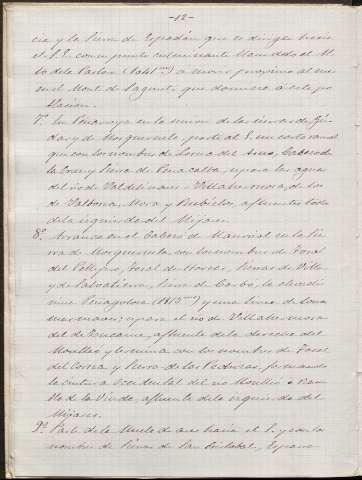 -12-
cia y la Sierra de Espadán que se dirige hacia
el S.E. con un punto culminante llamado el Al-
to de la Parlon (1041 ms) a menos próximo al mar
el Mont de Sagunto que domina a esta po-
blación.
7º En Peñarroya en la union de las sierras de Gú-
dar y de Mosqueruela, parte al S. un corto ramal
que con los nombres de Loma del Asno, Cabezo de
la Cruz y Sierra de Peñacalba, separa las aguas
del rio de Valdelinares o Villahermosa, de los
de Valbona, Mora y Rubielos, afluentes todos
de la izquierda del Mijares.
8º Arranca en el Cabezo de Monnial en la Sie-
rra de Mosqueruela con los nombres de Tosal
del Pelegrin, Tosal de Horcas, Lomas de Villa
y de Salvatierra, Sierra de Garbo, la elevadi-
sima Peñagolosa (1813 ms) y una linea de lomas
separa el rio de Villahermosa
del de Lucena, afluente de la derecha del
Monlleo y termina con los nombres de Tosal
del Correa y Sierra de las Pedrizas, formando
la Occidental del rio Monlleo o Ram-
bla de la Viuda, afluente de la izquierda del
Mijares.
9º Parte de la Muela de Ares hacia el S. y con los
nombres de Sierra de San Cristobal, Esparre